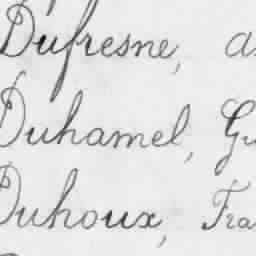 Dufresne, a
Duhamel, Gu
Duhoux, Fra